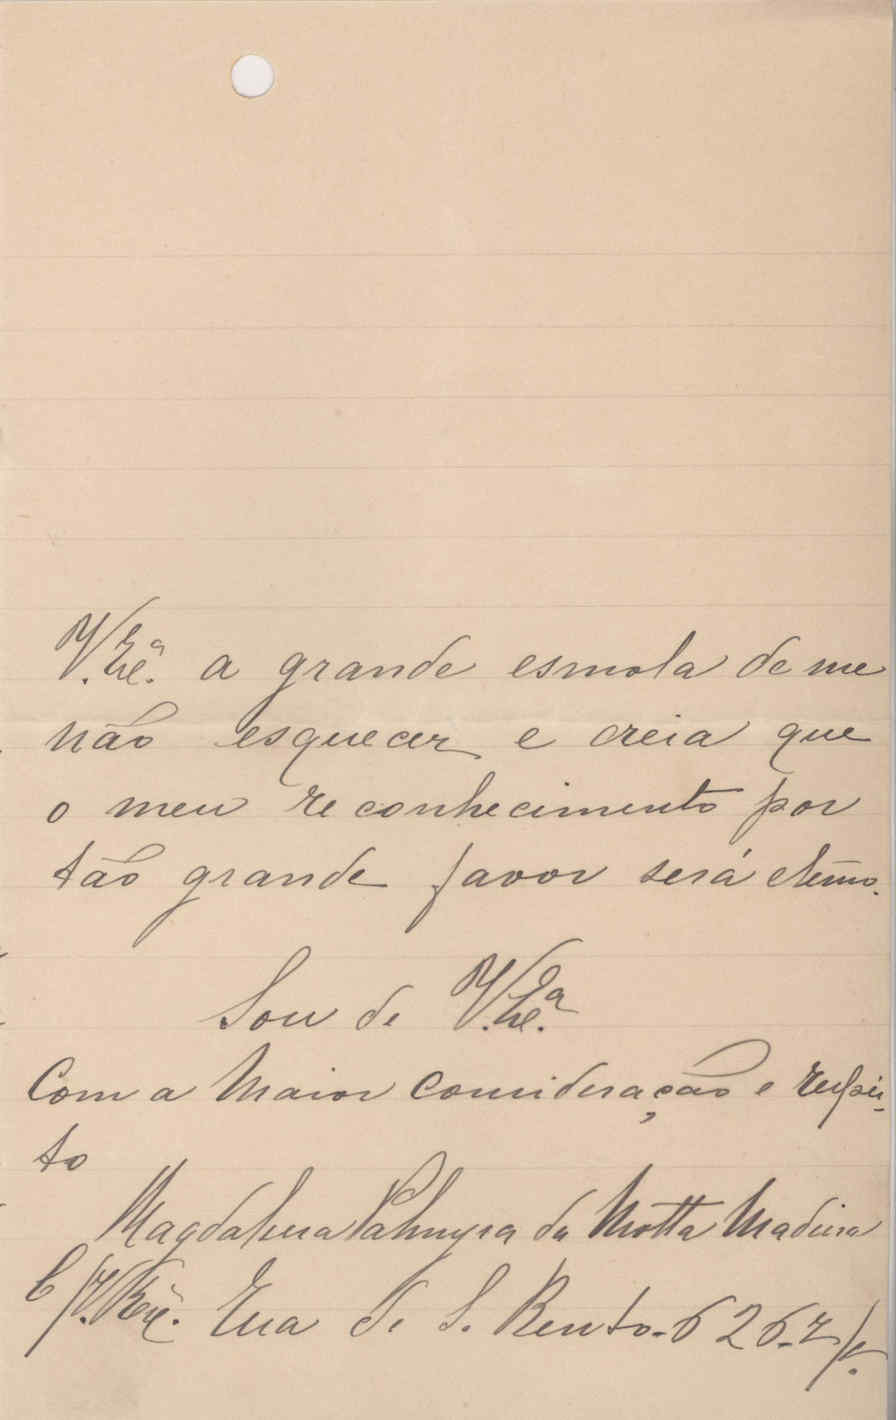 V. Exª. a grande esmola de me
não esquecer e creia que
o meu reconhecimento por
tão grande favor será eterno.
Sou de V. Exª.
Com a Maior consideração e respei-
to
Magdalena Palmyra da Motta Madeira
Rua de S. Bento. 626.2